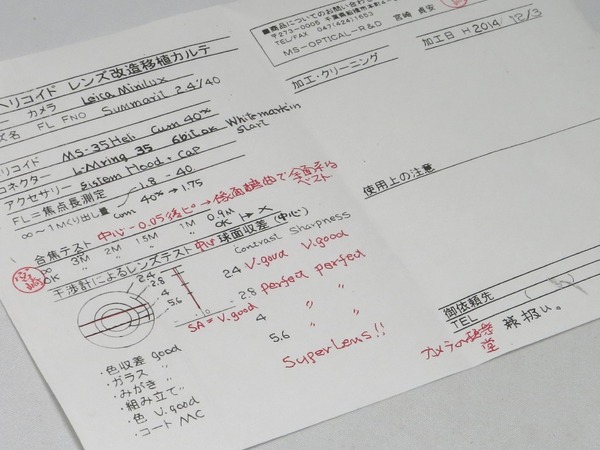 ヘリコイド レンズ改造移植カルテ
カメラ Leica Minilux
ズ名 FL FNO Summarit 2.4/40
リコイド MS-35Heli Cum 40%
ネクター L-Mring 35 6bit ok White mark in
アクセサリー Sistem Hood + Cap start
FL=焦点長測定 1.8 - 40
∞~1Mくり出し量 Cum 40% → 1.75
合焦テスト 中心-0.05後ピ→後面
∞ 3M 2M 1.5M 1M 0.9M
OK 〃 〃 〃 〃 OK
干渉計によるレンズテスト 中心 球面収差(中心)
Contrast Sharpness
2.4 2.4 V.good V.good
2.8 2.8 perfect perfect
5.6 4 〃 〃
5.6 〃 〃
SA = V.good
Super Lens!!
・色収差 good
・ガラス 〃
・みがき 〃
・組み立て 〃
・色 V.good
・コート MC
■商品についてのお問い合わ
〒273-0005 千葉県船橋市本町4-
TEL/FAX 047(424)1653
MS-OPTICAL-R&D 宮崎 貞安
加工日 H 2014/12/3
加工・クリーニング
使用上の注意
御依頼先
TEL 様扱い。
カメラの
堂